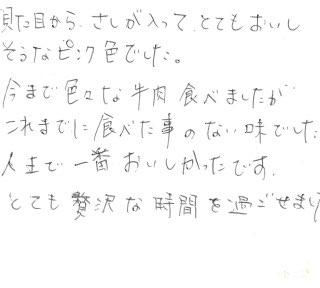 見た目から、さしが入って、とてもおいし
そうなピンク色でした。
今まで色々な牛肉食べましたが
これまでに食べた事のない味でした
人生で一番おいしかったです。
とても贅沢な時間を過ごせまし